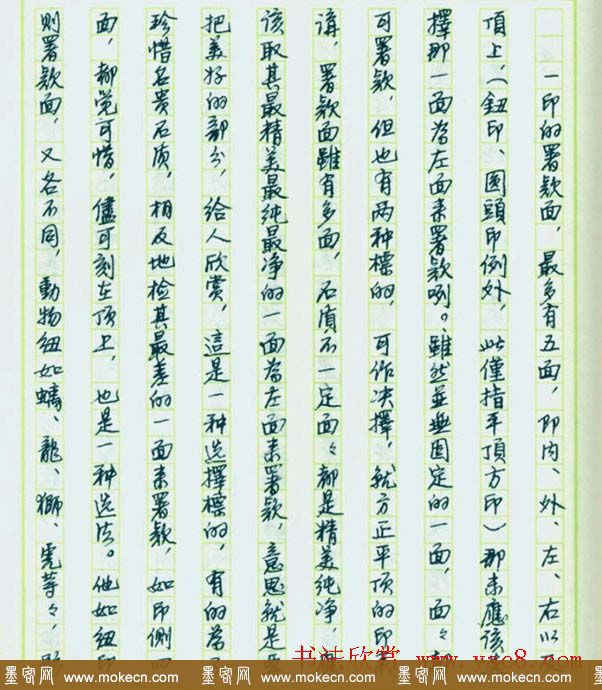 一印的署款面，最多有五面，即内、外、左、右以及
頂上，（鈕印、圓頭印例外，此僅指平頂方印）那末應該
擇那一面為左面来署款咧。雖然並無固定的一面，面々都
可署款，但也有两种標的，可作决擇，就方正平頂的印
讲，署款面雖有多面，石质不一定面々都是精美纯净，
该取其最精美最纯最净的一面為左面来署款，意思就是要
把美好的部分，给人欣赏，這是一种选擇標的，有的為了
珍惜名贵石质，相反地检其最差的一面来署款，如印侧四
面，都觉可惜，儘可刻在顶上，也是一种选法。他如纽印
则署款面，又各不同，動物纽如螭、龍、獅、虎等々，
书法欣赏 www.yac8.com
墨客网 www.mokecn.com 墨客网 www.mokecn.com 墨客网 www.mokecn.com